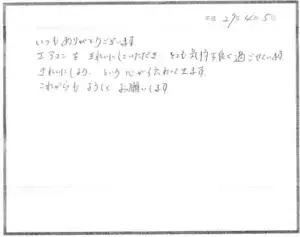 27年4月5日
いつもありがとうございます
エアコンをきれいにしていただき とても気持ち良く過ごせています
きれいにしよう という心が伝わってきます
これからも よろしく お願いします